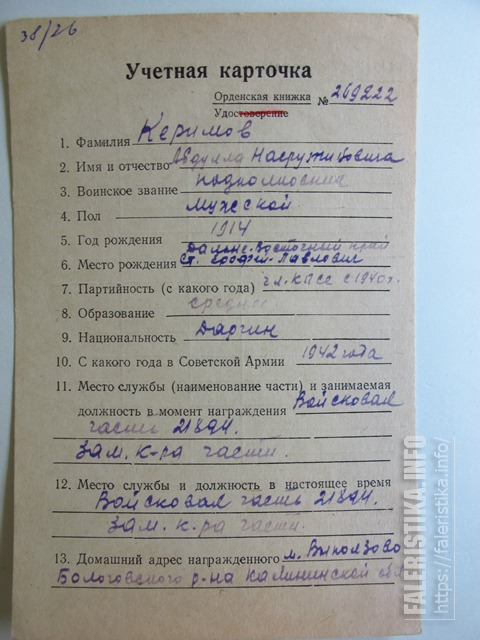 38/26
Учетная карточка
Орденская книжка № 269222
Удостоверение
1. Фамилия Керимов
2. Имя и отчество Абдулла
3. Воинское звание подполковник
4. Пол Мужской
1914
5. Год рождения
Дальне-Восточный край
6. Место рождения ст.
7. Партийность (с какого года) чл. КПСС с 1940 г.
8. Образование среднее
9. Национальность Даргин
10. С какого года в Советской Армии 1942 года
11. Место службы (наименование части) и занимаемая
должность в момент награждения Войсковая
часть 21894.
Зам. к-ра части.
12. Место службы и должность в настоящее время
Войсковая часть 21894.
Зам. к-ра части.
13. Домашний адрес награжденного м. Выползово
Бологовского р-на Калининской обл
FALERISTIKA.info
https://faleristika.info/